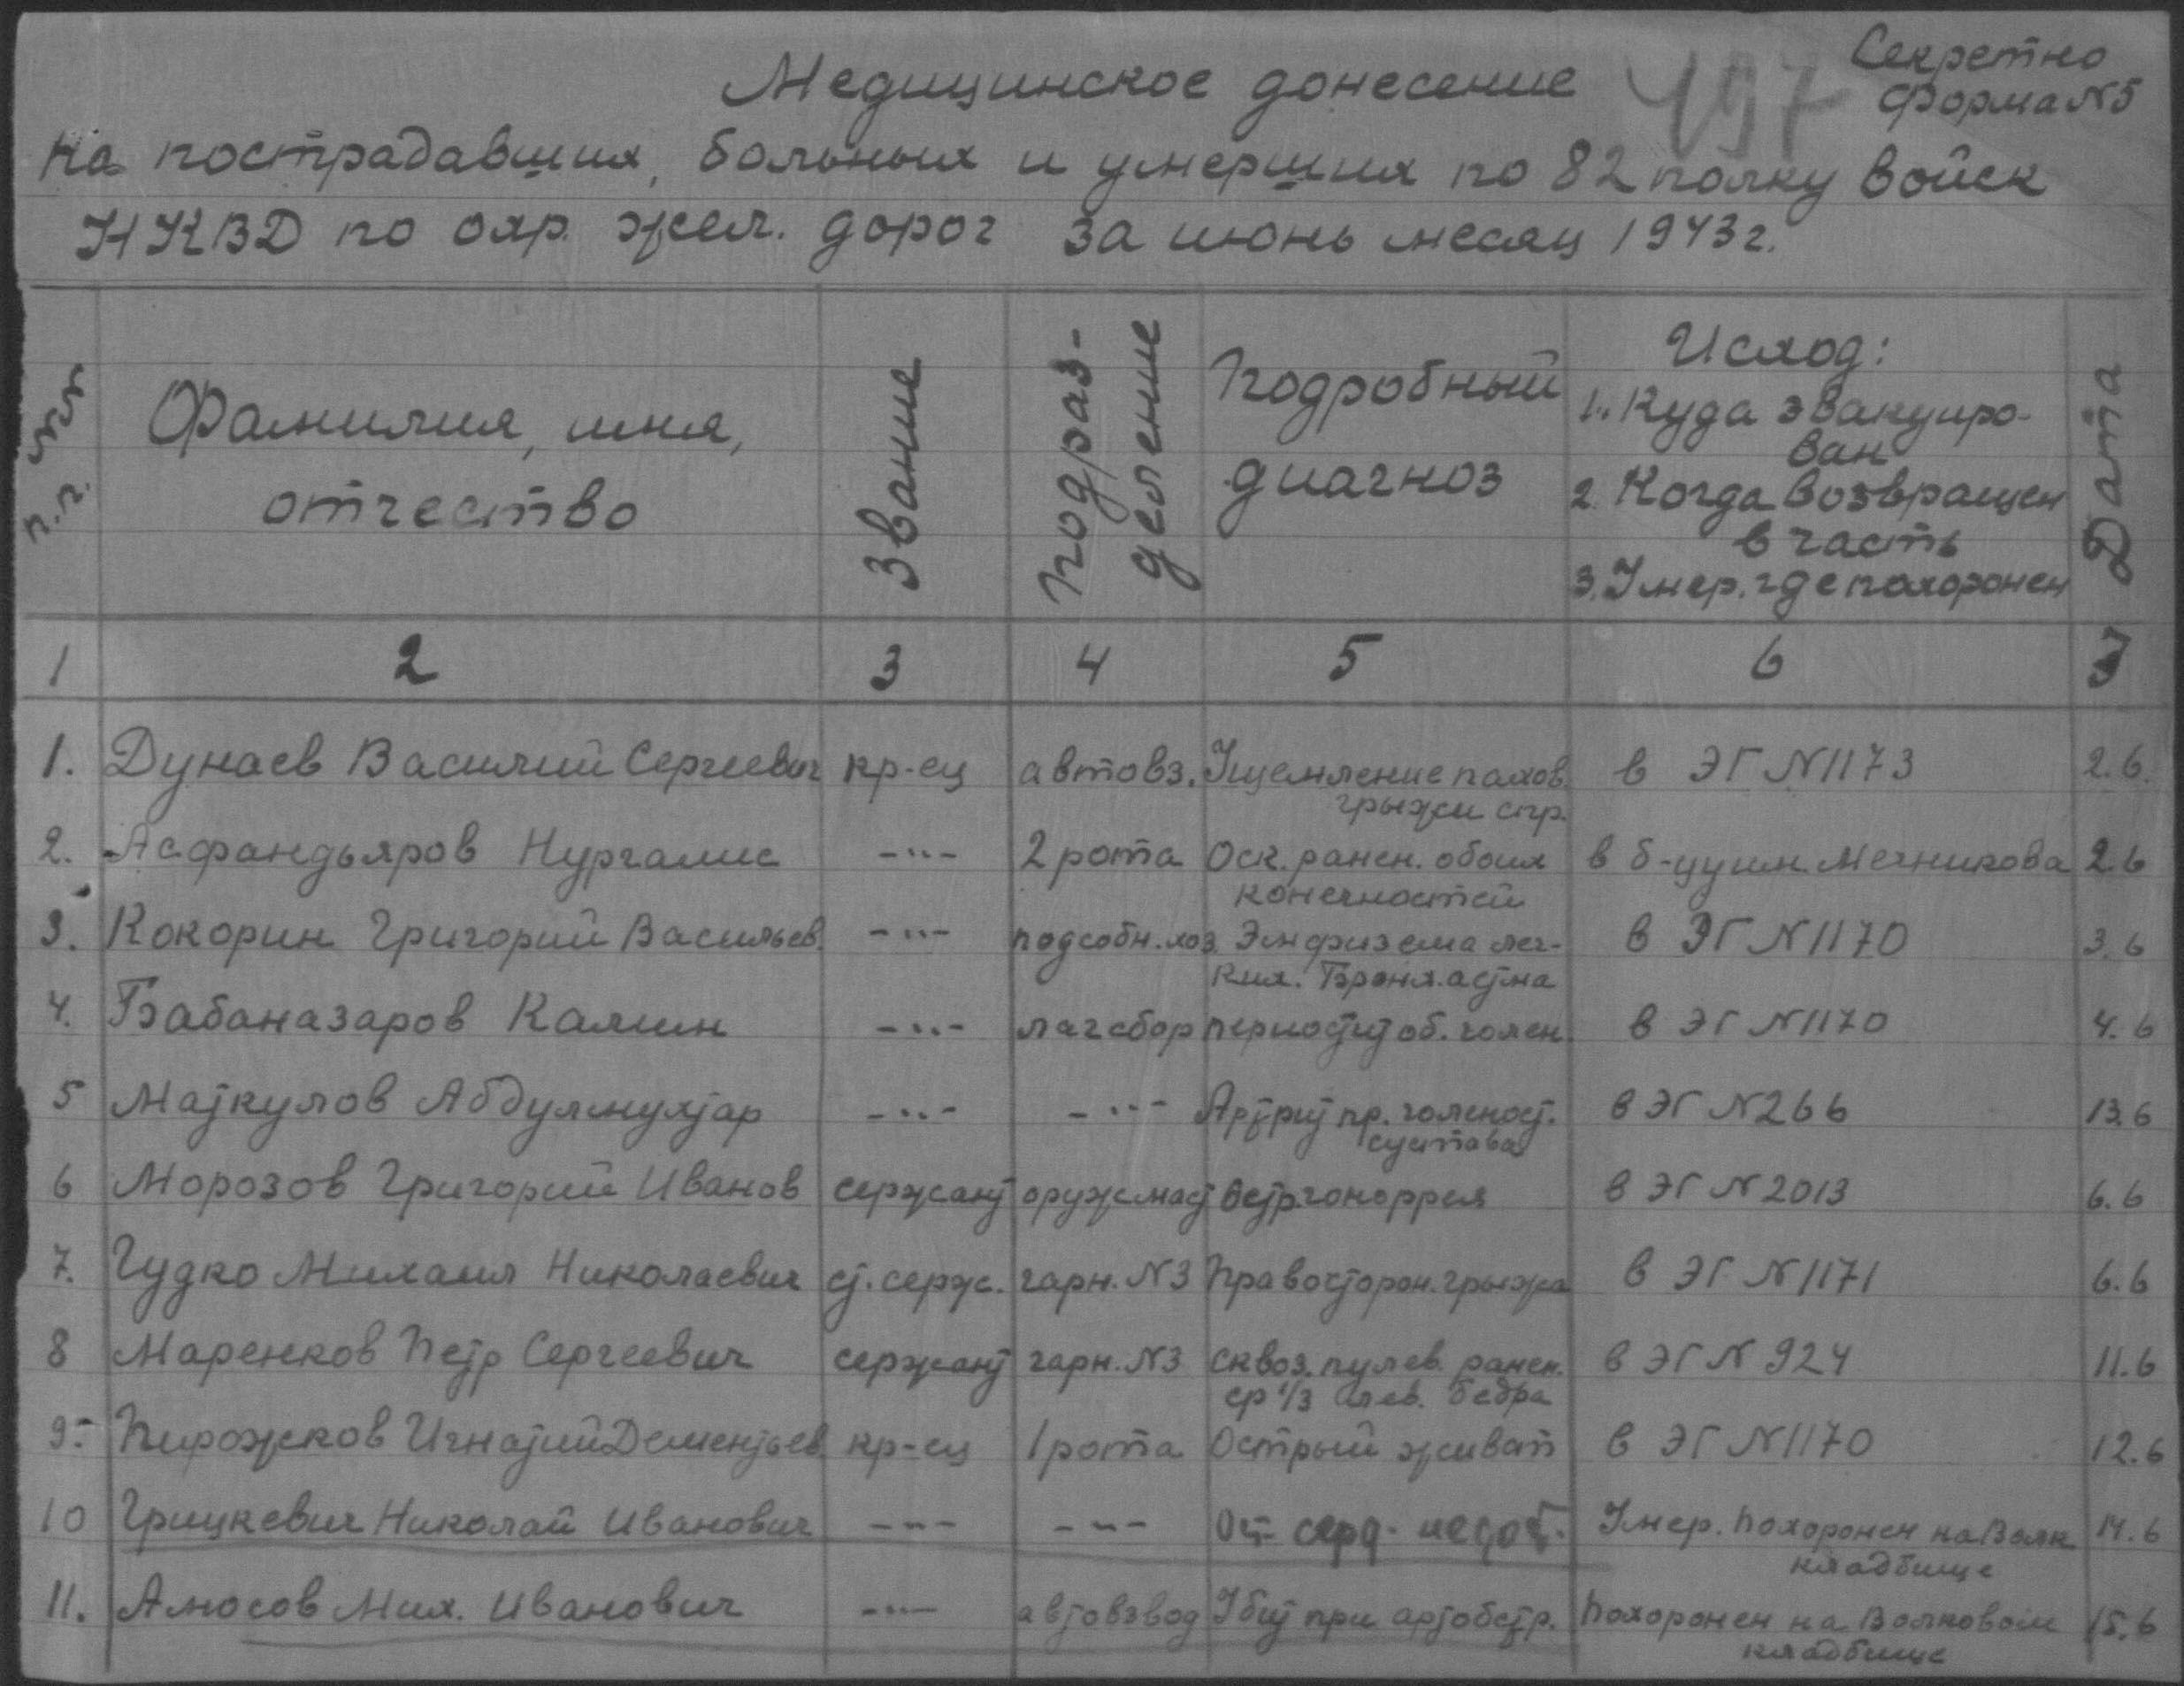 Секретно
Форма N5
197
Медицинское донесение
на пострадавших, больных и умерших по 82 полку войск
НКВД по охр. жел. дорог за июнь месяц 1943 г.
NN п.п. Фамилия, имя, отчество Звание Подраз-деление Подробный диагноз Исход: Дата
1. Куда эвакуиро-
ван
2. Когда возвращен
в часть
3. Умер. где похоронен
1 2 3 4 5 6 7
1. Дунаев Василий Сергеевич кр-ец автовз. Ущемление пахов. в ЭГ N1173 2.6.
грыжи спр.
2. Асфандьяров Нургалис -"- 2 рота Оск. ранен. обоих в б-цу им. Мечникова 2.6
конечностей
3. Кокорин Григорий Васильев. -"- подсобн. хоз. Эмфизема лег- в ЭГ N1170 3.6
ких. Бронх. астма
4. Бабаназаров Калин -"- лагсбор периостит об. голен. в ЭГ N1170 4.6
5 Маткулов Абдулмухтар -"- -"- Артрит пр. голеност. в ЭГ N266 13.6
сустава
6 Морозов Григорий Иванов сержант оружмаст Остр. гоноррея в ЭГ N2013 6.6
7. Гудко Михаил Николаевич ст. серж. гарн. N3 Правосторон. грыжа в ЭГ N1171 6.6
8 Маренков Петр Сергеевич сержант гарн. N3 Сквоз. пулев. ранен. в ЭГ N 924 11.6
ср 1/3 лев. бедра
9. Пирожков Игнатий Дементьев. кр-ец 1 рота Острый живот в ЭГ N1170 12.6
10 Грицкевич Николай Иванович -"- -"- Ост серд. недост. Умер. Похоронен на Волк 14.6
кладбище
11. Амосов Мих. Иванович -"- автовзвод Убит при артобстр. Похоронен на Волковом 15.6
кладбище